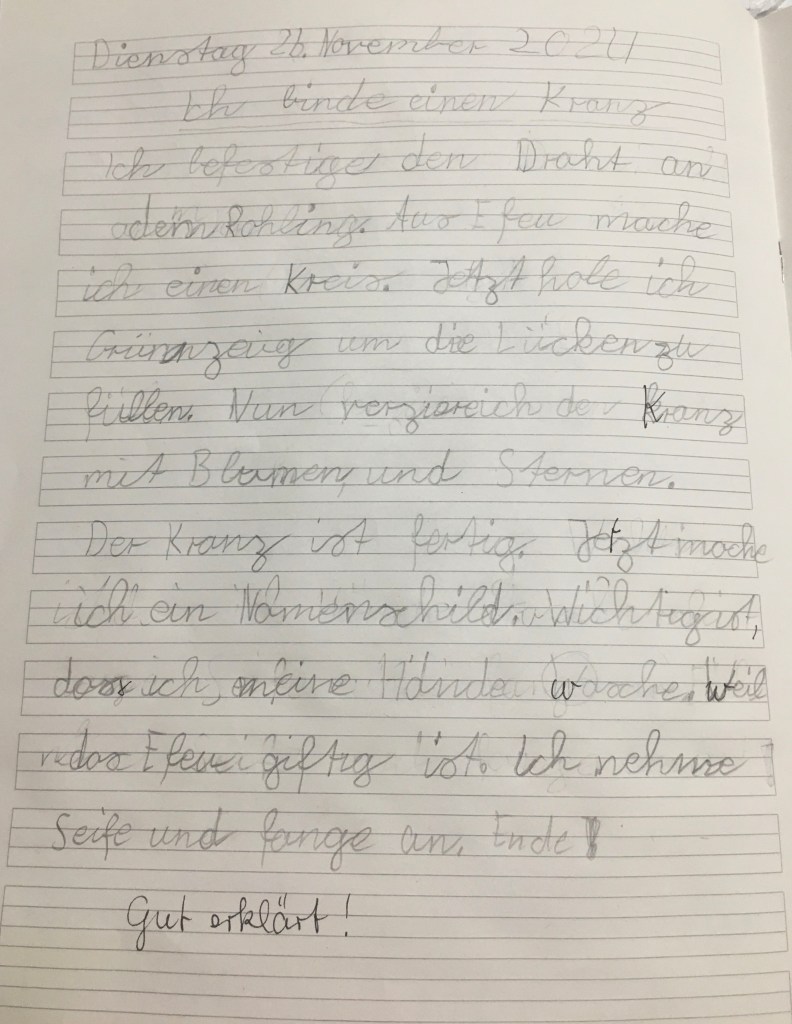 Dienstag 26. November 2024
Ich binde einen Kranz
Ich befestige den Draht an
dem Rohling. Aus Efeu mache
ich einen Kreis. Jetzt hole ich
Grünzeug um die Lücken zu
füllen. Nun verziere ich de Kranz
mit Blumen und Sternen.
Der Kranz ist fertig. Jetzt mache
ich ein Namenschild. Wichtig ist,
dass ich meine Hände wasche. Weil
das Efeu giftig ist. Ich nehme
Seife und fange an. Ende!
Gut erklärt!